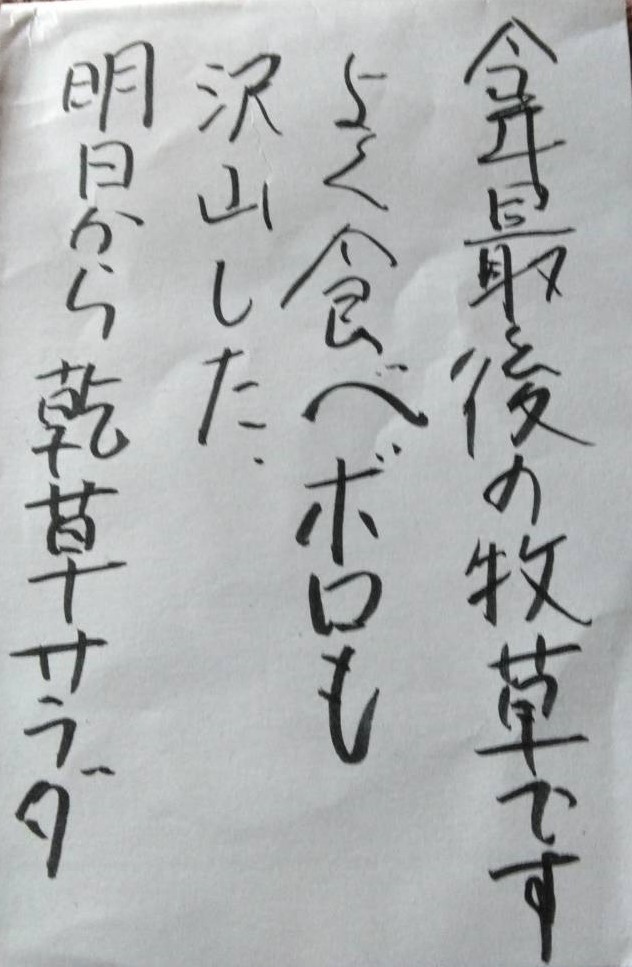 今年最後の牧草です
よく食べボロも
沢山した、
明日から乾草サラダ